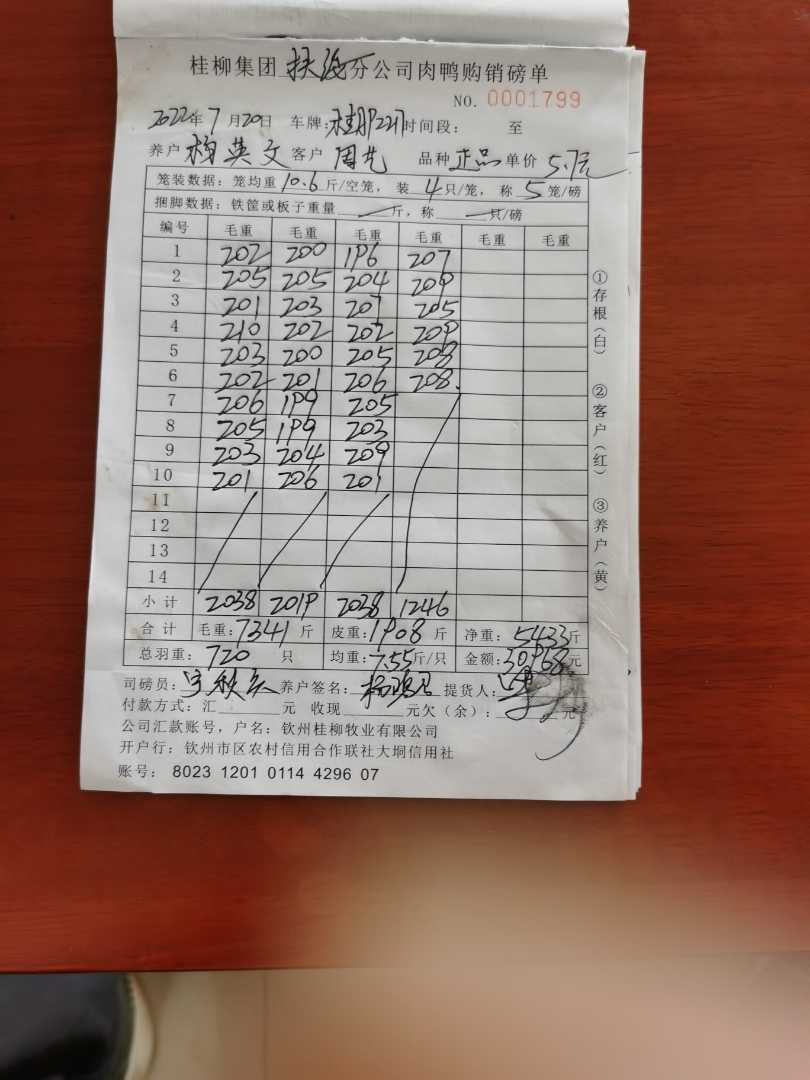 桂柳集团 分公司肉鸭购销磅单
NO. 0001799
2022年 7 月 20日 车牌: 时间段: 至
养户 杨英文 客户 周 品种 正品 单价 5.7元
笼装数据: 笼均重 10.6 斤/空笼, 装 4 只/笼, 称 5 笼/磅
捆脚数据: 铁筐或板子重量 斤, 称 只/磅
编号 毛重 毛重 毛重 毛重 毛重 毛重
1 202 200 196 207
2 205 205 204 209
3 201 203 207 205
4 210 202 202 209
5 203 200 205 208
6 202 201 206 208
7 206 199 205
8 205 199 203
9 203 204 209
10 201 206 201
11
12
13
14
小计 2038 2019 2038 1246
合计 毛重: 7341 斤 皮重: 1908 斤 净重: 5433斤
总羽重: 720 只 均重: 7.55斤/只 金额: 30968元
司磅员: 养户签名: 提货人:
付款方式: 汇 元 收现 元欠(余): 元
公司汇款账号, 户名: 钦州桂柳牧业有限公司
开户行: 钦州市区农村信用合作联社大垌信用社
账号: 8023 1201 0114 4296 07
①存根(白) ②客户(红) ③养户(黄)